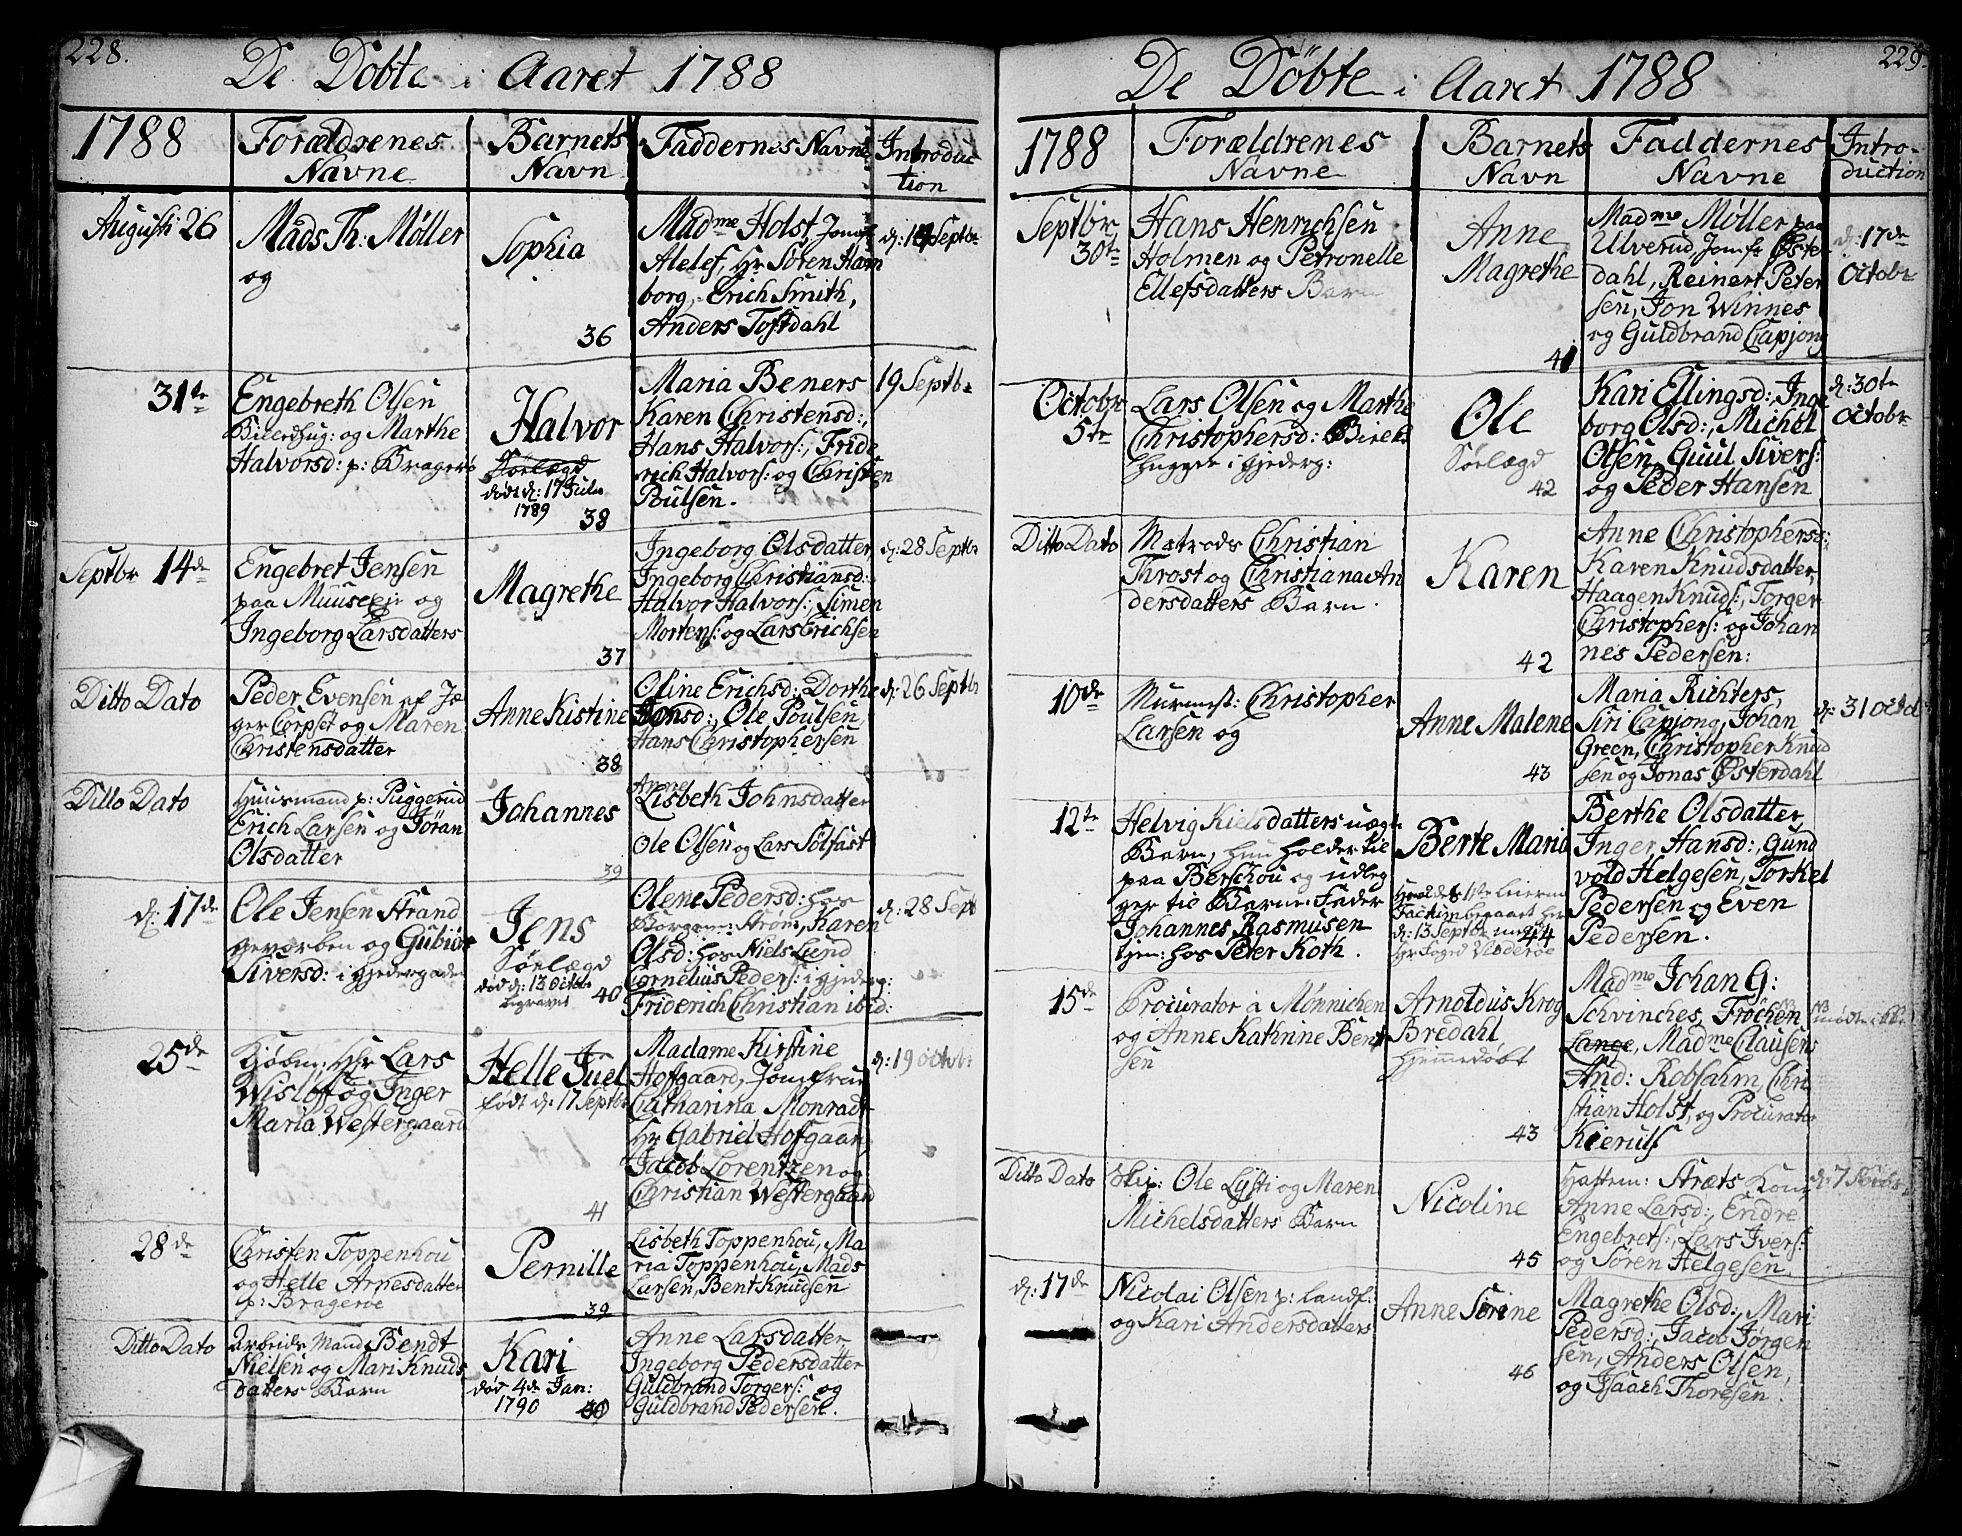 228.
De Döbte i Aaret 1788
1788
Forældrenes
Navne
Barnets
Navn
Faddernes Navne
Introduc
tion
Augusti 26
Mads Th: Møller
og
Sophia
36
Madme Holst, Jomf
Alelef, Hr Sören Ham
borg, Erich Smith,
Anders Tostdahl
d: 19 Septbr
31te
Engebreth Olsen
Halvorsd: p: Bragerö
Halvor
Sörlægd
dödt d: 17 Julii
1789
38
Maria Beners
Karen Christensd:,
Hans Halvors:, Fride
rich Halvors: og Christen
Poulsen.
19 Septbr
Septbr 14de
Engebret Jensen
paa Muuseeie og
Ingeborg Larsdatters
Magrethe
37
Ingeborg Olsdatter,
Ingeborg Christiansd:
Halvor Halvors:, Simen
Mortens: og Lars Erichsen
d: 28 Septbr
Ditto Dato
Peder Evensen af Jæ
ger Corpset og Maren
Christensdatter
Anne Kistine
38
Oline Erichsd:, Dorthe
Hansd:, Ole Poulsen,
Hans Christophersen
d: 26 Septbr
Ditto Dato
Huusmand p: Puggerud
Erich Larsen og Jöran
Olsdatter
Johannes
39
Anne
Lisbeth Johnsdatter
Ole Olsen og Lars Sölfast
d: 17de
Ole Jensen Strand
geværben og Gubiör
Siversd: i Gjedergaden
Jens
Sörlægd
död d: 13 Octobr
begravet
40
Olene Pedersd: hos
Borgerm: Ström, Karen
Olsd: hos Niels Lund
Cornelius Peders: i Gjederg:
Friderich Christian ibid:
d: 28 Sept
25de
Kjöbm: Hr Lars
Wislöff og Inger
Maria Westergaard
Helle Juel
födt d: 17 Septbr
41
Madame Kirstine
Hofgaard, Jomfrue
Catharina Monradt
Hr Gabriel Hofgaard
Jacob Lorentzen og
Christian Westergaard
d: 19 Octbr
28de
Christen Toppenhou
og Helle Arnesdatter
p: Bragerøe
Pernille
39
Lisbeth Toppenhou, Ma
ria Toppenhou, Mads
Larsen, Bent Knudsen
Ditto Dato
Arbeids Mand Bendt
Nielsen og Mari Knuds
datters Barn
Kari
död 4de Jan:
1790
Anne Larsdatter
Ingeborg Pedersdatter
Guldbrand Torgers: og
Guldbrand Pedersen.
229.
De Döbte i Aaret 1788
1788
Forældrenes
Navne
Barnets
Navn
Faddernes
Navne
Intro-
duction
Septbr
30te
Hans Henrichsen
Holmen og Petronelle
Ellefsdatters Barn
Anne
Magrethe
41
Madme Møller paa
Ulverud, Jomfr Øster
dahl, Reinert Peter
sen, Jon Winnes
og Guldbrand Capjong
d: 17de
Octobr
Octobr
5te
Lars Olsen og Marthe
Christophersd: Birke
hugget i Gjederg:
Ole
Sörlægd
42
Kari Ellingsd:, Inge
borg Olsd:, Michel
Olsen, Guul Sivers:
og Peder Hansen
d: 30te
Octobr
Ditto Dato
Matrods Christian
Throst og Christiana An
dersdatters Barn.
Karen
42
Anne Christophersd:,
Karen Knudsdatter,
Haagen Knuds:, Torger
Christophers: og Johan
nes Pedersen:
10de
Murmest: Christopher
Larsen og
Anne Malene
43
Maria Richters,
Siri Capjong, Johan
Green, Christopher Knud
sen og Jonas Østerdahl
d: 31 Octob
12te
Helvig Kielsdatters uægte
Barn, hun holder til
paa Berschou og udleg
ger til Barne-Fader
Johannes Rasmusen
tjen: hos Peter Koth.
Berte Maria
44
Berthe Olsdatter,
Inger Hansd:, Gund
vold Helgesen, Torkel
Pedersen og Even
Pedersen.
15de
Procurator a Mönnichen
og Anne Kathrine Bent
sen
Arnoldus Krog
Bredahl
hjemmedöbt
43
Madme Johan G:
Schvinches, Fröchen
Lange, Madme Clausens
And: Robsahm, Chri
stian Holst, og Procurator
Kierulf
Ditto Dato
Skip: Ole Lysti og Maren
Michelsdatters Barn
Nicoline
45
Hattem: Stræts Kone
Anne Larsd:, Endre
Engebrets:, Lars Ivers:
og Sören Helgesen.
d: 7
d: 17de
Nicolai Olsen p: Landf:
og Kari Andersdatters
Anne Sörine
46
Magrethe Olsd:, Mari
Pedersd:, Jacob Jörgen
sen, Anders Olsen,
og Isaach Thoresen.